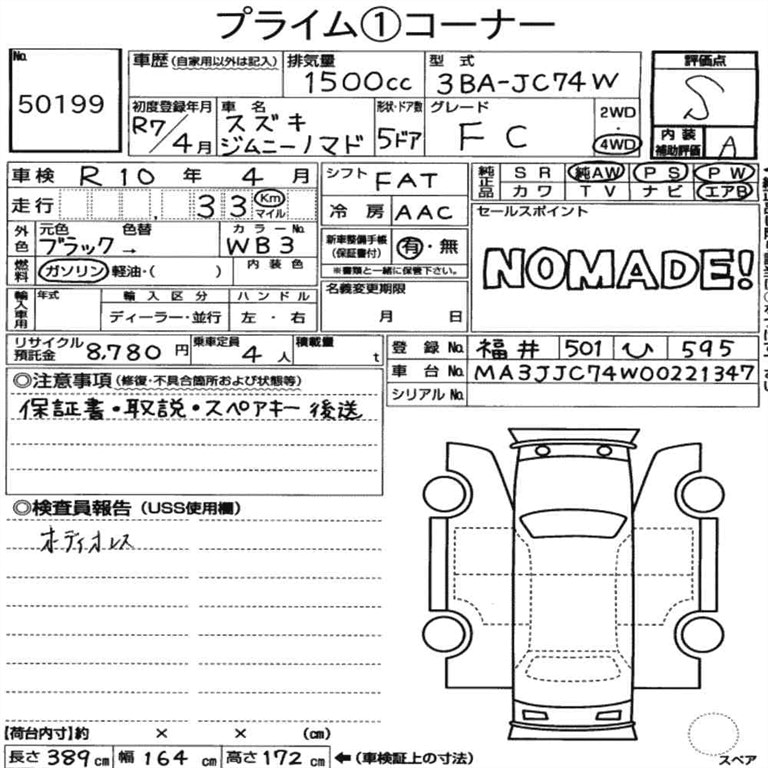 プライム①コーナー
No. 50199
車歴 (自家用以外は記入) 排気量 1500cc 型式 3BA-JC74W
初度登録年月 R7/4月 車名 スズキ ジムニーノマド 形状・ドア数 5ドア グレード FC 2WD・4WD
評価点 S
内装補助評価 A
車検 R10年4月
走行 33 Km マイル
シフト FAT
冷房 AAC
純正品 SR 純AW PS PW
カワ TV ナビ エアB
外色 元色 ブラック→ 色替 カラーNo. WB3
燃料 ガソリン・軽油・( ) 内装色
新車整備手帳(保証書付) 有・無
※書類と一緒に保管下さい。
セールスポイント
NOMADE!
輸入車用 年式 輸入区分 ハンドル
ディーラー・並行 左・右
名義変更期限 月 日
リサイクル預託金 8,780円 乗車定員 4人 積載量 t
登録No. 福井 501 ひ 595
車台No. MA3JJC74W00221347
シリアルNo.
◎注意事項(修復・不具合箇所および状態等)
保証書・取説・スペアキー後送
◎検査員報告(USS使用欄)
ホディオレス
【荷台内寸】約 × × (cm)
長さ 389cm 幅 164cm 高さ 172cm ←(車検証上の寸法)
スペア